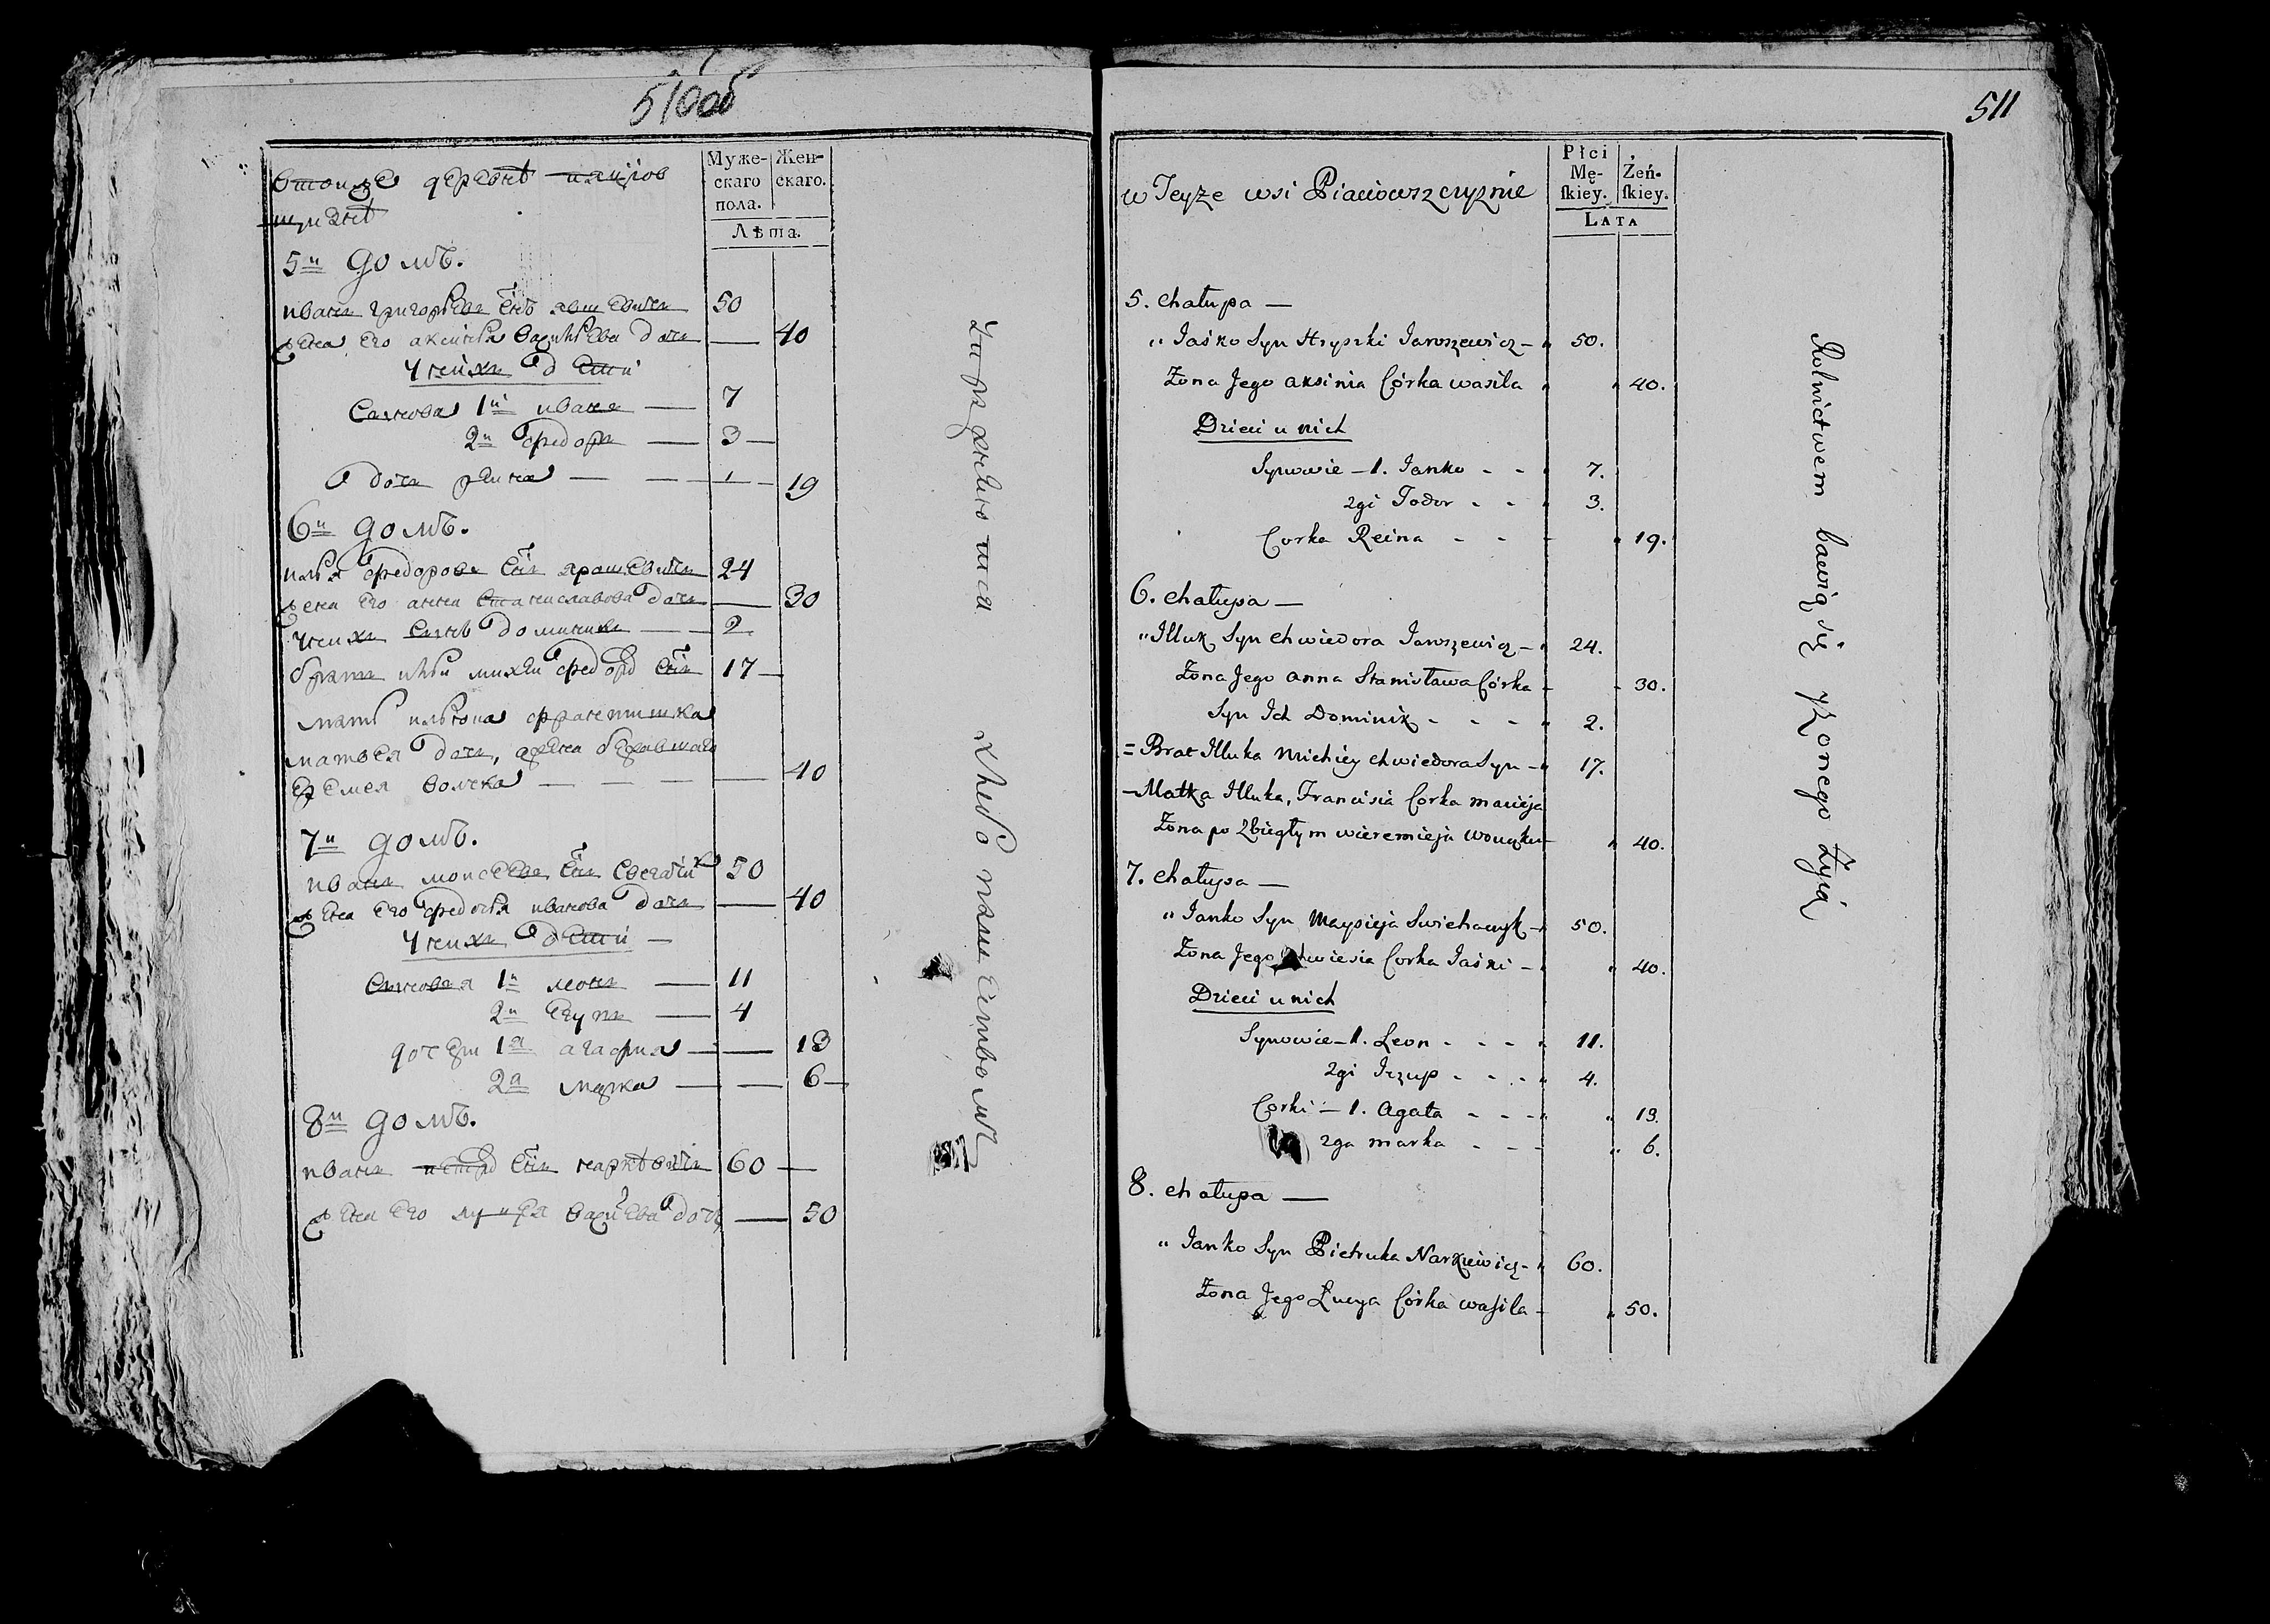 510об
Муже-скаго пола. Жен-скаго.
Лѣта.
втойже деревнѣ пяцюв
щизнѣ
5й домъ.
иванъ григорьевъ сынъ 50
жена его аксинья васильева дочь — 40
У нихъ дети
сыновья 1й иванъ — 7
2й федоръ — 3
дочь реина — 19
6й домъ.
илья федоровъ сынъ ярошевичъ 24
жена его анна станиславова дочь — 30
у нихъ сынъ доминикъ — 2
братъ ильи михей федоръ сынъ 17
мать ильюна францишка
матвея дочь, жена бежавшаго
еремея — 40
7й домъ.
иванъ моисеевъ сынъ 50
жена его федосья иванова дочь — 40
У нихъ дети —
сыновья 1й леонъ — 11
2й — 4
дочери 1я агафия — 13
2я марка — 6
8й домъ.
иванъ петръ сынъ наркевичъ 60 —
жена его луцея васильева дочь — 50
511
w Teyże wsi Piaciowszczyznie
Płci Mę-ſkiey. Żeń-ſkiey.
LATA
5. chałupa —
„ Jaśko Syn Hryszki Jaroszewicz — 50.
Żona Jego Aksinia Córka wasila 40.
Dzieci u nich
Synowie — 1. Janko - - 7.
2gi Todor - - 3.
Corka Reina - - 19.
6. chałupa —
„ Illuk Syn chwiedora Jaroszewicz — 24.
Żona Jego Anna Stanisława Córka 30.
Syn Ich Dominik - - - 2.
= Brat Illuka Michiey chwiedora Syn — 17.
— Matka Illuka, Francisia Corka macieja
Żona po Zbiegłym wieremieja 40.
7. chałupa —
„ Janko Syn Maysieja Swichaczyk — 50.
Żona Jego Chwiesia Corka Jaśki — 40.
Dzieci u nich
Synowie — 1. Leon - - - 11.
2gi Jezup - - - 4.
Corki — 1. Agata - - - 13.
2ga marka - - - 6.
8. chałupa —
„ Janko Syn Pietruka Narkiewicz — 60.
Żona Jego Łucya Córka wasila — 50.
Rolnictwem bawią się y z onego Żyią